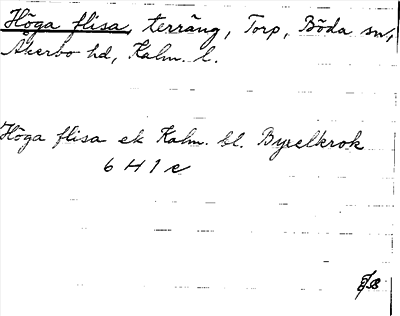 Höga flisa, terräng, Torp, Böda sn,
Åkerbo hd, Kalm. l.
Höga flisa ek Kalm. bl. Byxelkrok
6 H 1 e